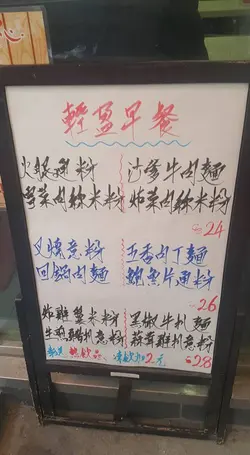 輕盈早餐
火腿通粉 沙爹牛肉麵
雪菜肉絲米粉 炸菜肉絲米粉
24
叉燒意粉 五香肉丁麵
回鍋肉麵 鮑魚片通粉
26
炸雞蜜米粉 黑椒牛扒麵
煎雞扒意粉 蒜茸雞扒意粉
28
熱飲品、凍飲加2元